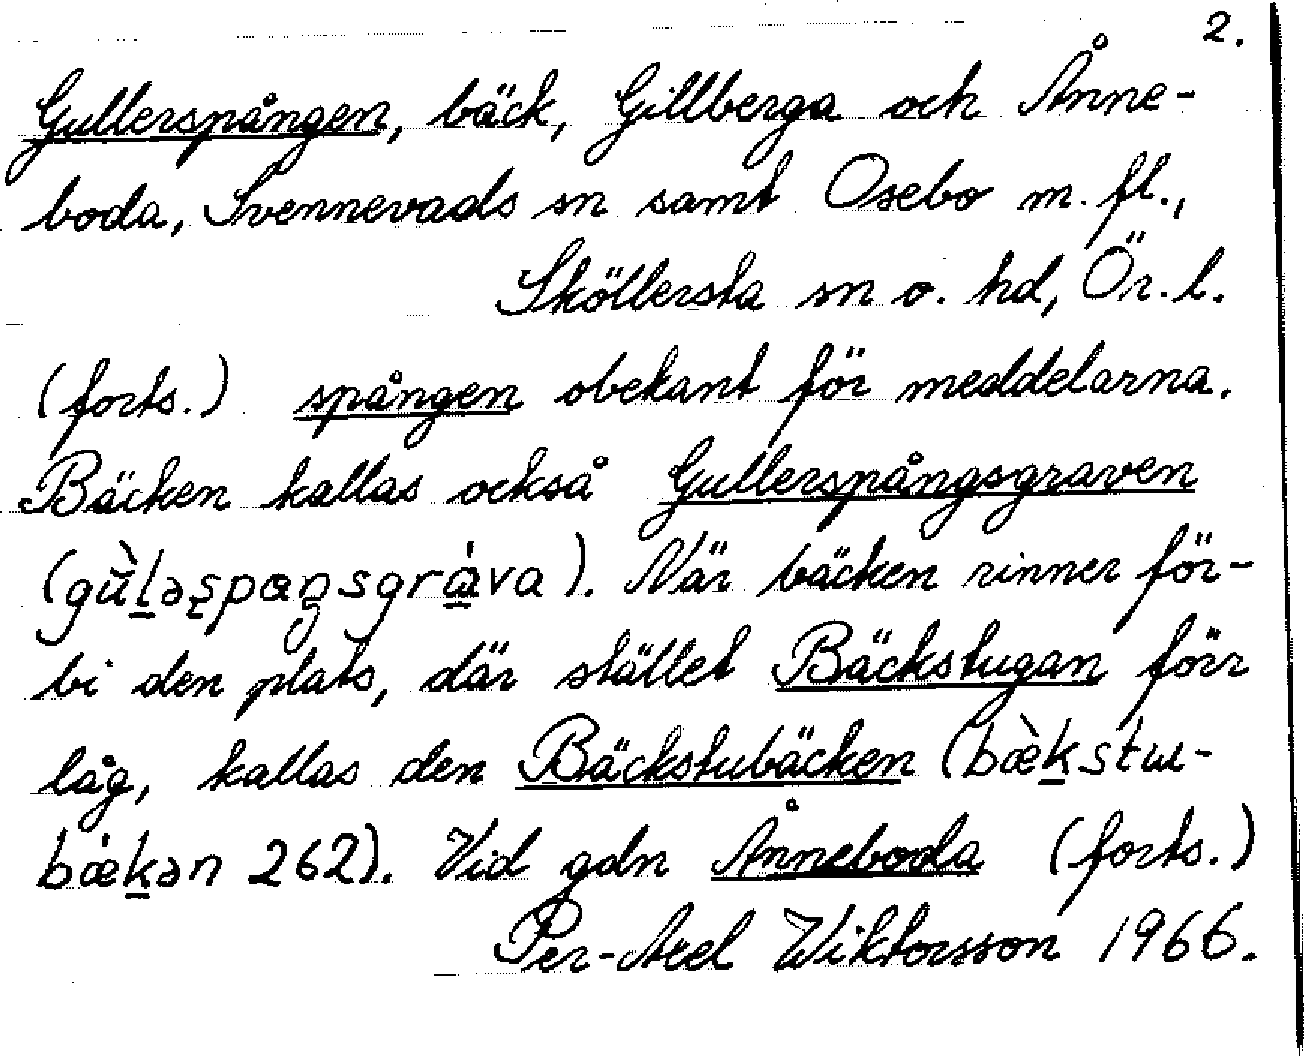 2.
Gullerspången, bäck, Gillberga och Ånne-
boda, Svennevads sn samt Osebo m. fl.,
Sköllersta sn o. hd, Ör. l.
(forts.) spången obekant för meddelarna.
Bäcken kallas också Gullerspångsgraven
(gùḷəʂpaŋsgráva). När bäcken rinner för-
bi den plats, där stället Bäckstugan förr
låg, kallas den Bäckstubäcken (bæ̀kstɯ-
bǽkən 262). Vid gdn Ånneboda (forts.)
Per-Axel Wiktorsson 1966.